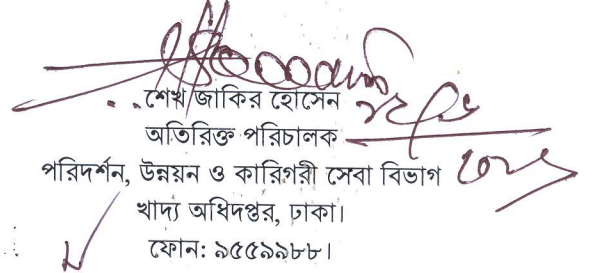 শেখ জাকির হোসেন
অতিরিক্ত পরিচালক
পরিদর্শন, উন্নয়ন ও কারিগরী সেবা বিভাগ
খাদ্য অধিদপ্তর, ঢাকা।
ফোন: ৯৫৫৯৯৮৮।